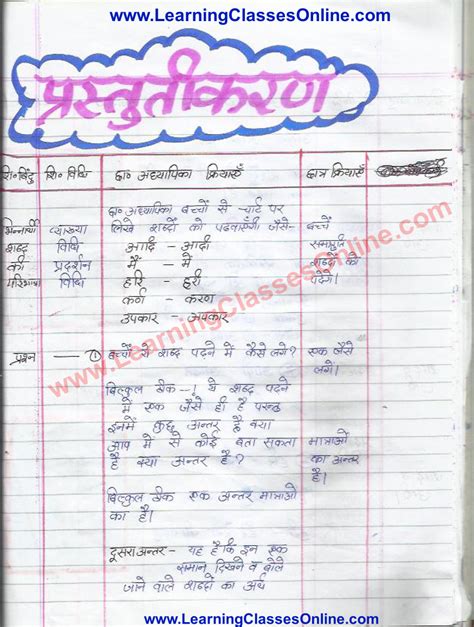 www.LearningClassesOnline.com
प्रस्तुतीकरण
शि० बिंदु शि० विधि छा० अध्यापिका क्रियाएँ छात्र क्रियाएँ
छा० अध्यापिका बच्चों से चार्ट पर
भिन्नार्थी व्याख्या लिखे शब्दों को पढवाएगी जैसे- बच्चे
शब्द विधि आदि - आदी
की प्रदर्शन में - मे शब्दों को
परिभाषा विधि हरि - हरी पढेंगे।
कर्ण - करण
उपकार - अपकार
www.LearningClassesOnline.com
प्रश्न ① बच्चों ये शब्द पढने में कैसे लगे? एक जैसे
लगे।
बिल्कुल ठीक -! ये शब्द पढने
में एक जैसे ही है परन्तु
इनमें कुछ अन्तर है क्या
आप में से कोई बता सकता मात्राओं
है क्या अन्तर है? का अन्तर
है।
बिल्कुल ठीक एक अन्तर मात्राओं
का है।
दूसरा अन्तर - यह है कि इन एक
समान दिखने व बोले
जाने वाले शब्दों का अर्थ
www.LearningClassesOnline.com